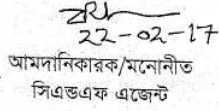 22-02-17
আমদানিকারক/মনোনীত
সিএন্ডএফ এজেন্ট